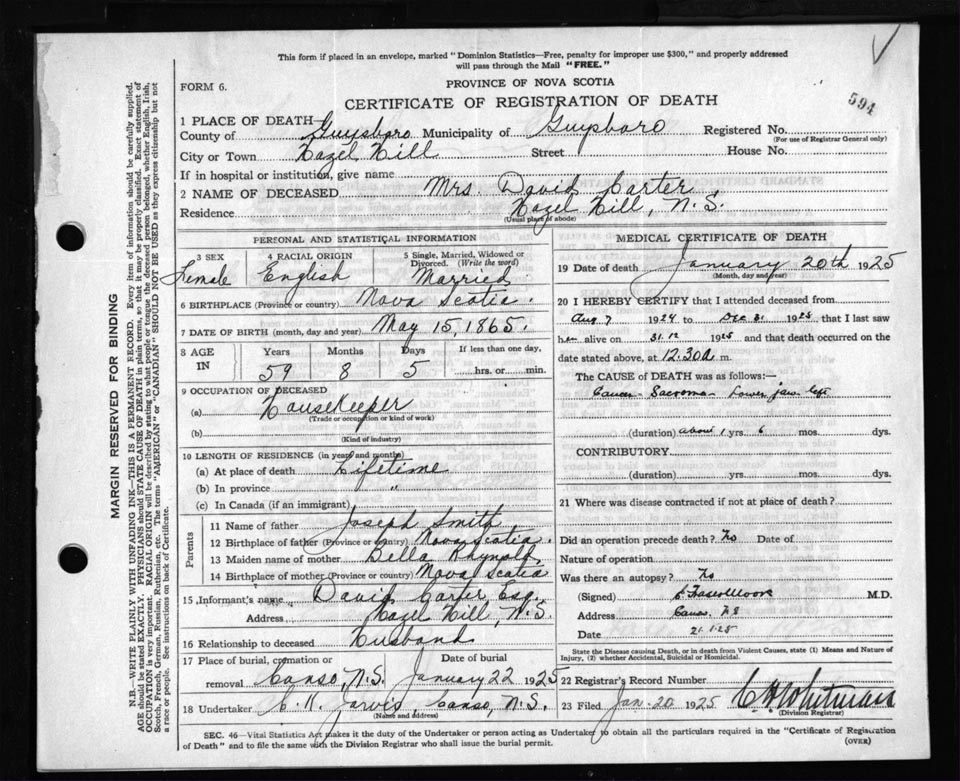 This form if placed in an envelope, marked "Dominion Statistics—Free, penalty for improper use $300," and properly addressed
will pass through the Mail "FREE."
FORM 6.
PROVINCE OF NOVA SCOTIA
CERTIFICATE OF REGISTRATION OF DEATH
594
1 PLACE OF DEATH
County of Guysboro Municipality of Guysboro Registered No.
(For use of Registrar General only)
City or Town Hazel Hill Street House No.
If in hospital or institution, give name
2 NAME OF DECEASED Mrs. David Carter.
Residence Hazel Hill, N.S.
(Usual place of abode)
PERSONAL AND STATISTICAL INFORMATION
3 SEX Female
4 RACIAL ORIGIN English
5 Single, Married, Widowed or Divorced. (Write the word) Married
6 BIRTHPLACE (Province or country) Nova Scotia.
7 DATE OF BIRTH (month, day and year) May 15, 1865.
8 AGE IN Years 59 Months 8 Days 5 If less than one day, hrs. or min.
9 OCCUPATION OF DECEASED
(a) Housekeeper
(Trade or occupation or kind of work)
(b)
(Kind of industry)
10 LENGTH OF RESIDENCE (in years and months)
(a) At place of death Lifetime
(b) In province "
(c) In Canada (if an immigrant)
Parents
11 Name of father Joseph Smith
12 Birthplace of father (Province or country) Nova Scotia.
13 Maiden name of mother Bella Rhynold
14 Birthplace of mother (Province or country) Nova Scotia
15 Informant's name David Carter Esq.
Address Hazel Hill, N.S.
16 Relationship to deceased Husband
17 Place of burial, cremation or removal Canso, N.S. Date of burial January 22 1925
18 Undertaker C. H. Jarvis, Canso, N.S.
(Name and address)
MEDICAL CERTIFICATE OF DEATH
19 Date of death January 20th 1925
(Month, day and year)
20 I HEREBY CERTIFY that I attended deceased from
Aug 7 1924 to Dec 31 1925 that I last saw
her alive on 31.12 1925 and that death occurred on the
date stated above, at 12.30 a m.
The CAUSE OF DEATH was as follows:—
Cancer - Sacroma - Lower jaw left
(duration) about 1 yrs 6 mos. dys.
CONTRIBUTORY
(duration) yrs. mos. dys.
21 Where was disease contracted if not at place of death?
Did an operation precede death? No Date of
Nature of operation
Was there an autopsy? No
(Signed) Moore M.D.
Address Canso. N S
Date 21.1.25
State the Disease causing Death, or in Death from Violent Causes, state (1) Means and Nature of
Injury, (2) whether Accidental, Suicidal or Homicidal.
22 Registrar's Record Number
23 Filed Jan-20 1925 C H Whitman
(Division Registrar)
SEC. 46—Vital Statistics Act makes it the duty of the Undertaker or person acting as Undertaker to obtain all the particulars required in the "Certificate of Registration
of Death" and to file the same with the Division Registrar who shall issue the burial permit.
(OVER)
MARGIN RESERVED FOR BINDING
N.B.—WRITE PLAINLY WITH UNFADING INK—THIS IS A PERMANENT RECORD. Every item of information should be carefully supplied.
AGE should be stated EXACTLY. PHYSICIANS should STATE CAUSE OF DEATH in plain terms, so that it may be properly classified. Exact statement of
OCCUPATION is very important. RACIAL ORIGIN will be described by stating to what people or tongue the deceased person belonged, whether English, Irish,
Scotch, French, German, Russian, Ruthenian, etc. The terms "AMERICAN" or "CANADIAN" SHOULD NOT BE USED as they express citizenship but not
a race or people. See instructions on back of Certificate.